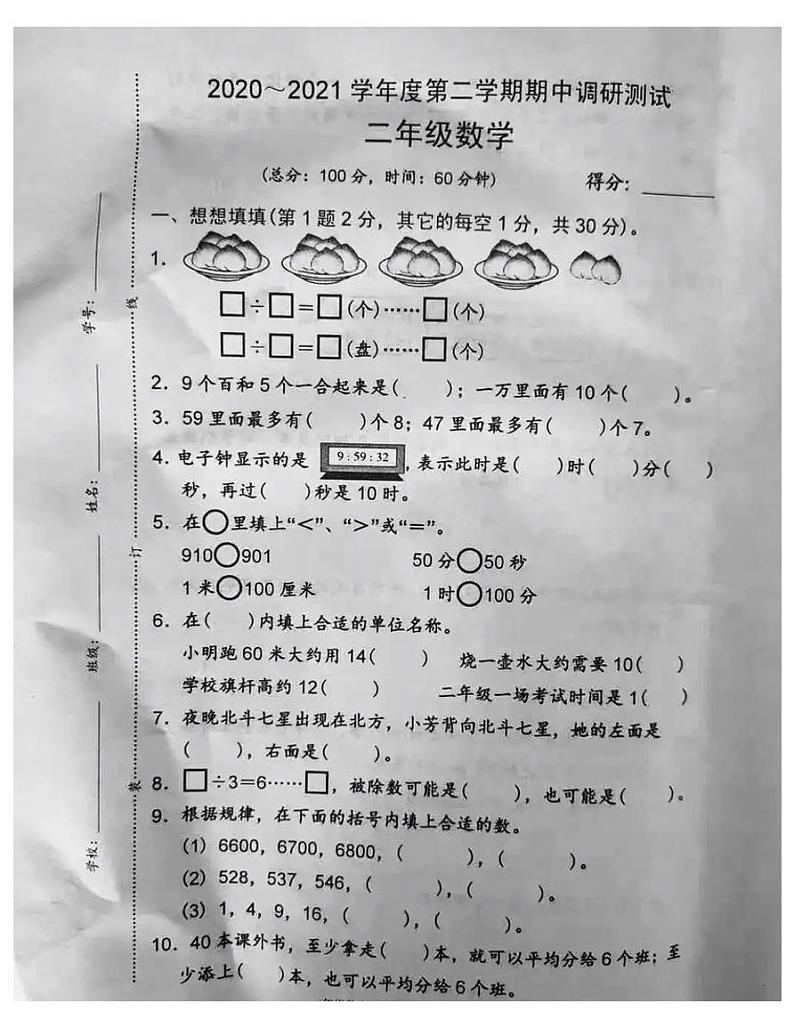 2020～2021 学年度第二学期期中调研测试
二年级数学
(总分：100 分，时间：60 分钟)　得分：______
一、想想填填(第 1 题 2 分，其它的每空 1 分，共 30 分)。
1.
□÷□＝□(个)……□(个)
□÷□＝□(盘)……□(个)
2. 9 个百和 5 个一合起来是(　　)；一万里面有 10 个(　　)。
3. 59 里面最多有(　　)个 8；47 里面最多有(　　)个 7。
4. 电子钟显示的是 9 : 59 : 32 ，表示此时是(　　)时(　　)分(　　)
秒，再过(　　)秒是 10 时。
5. 在○里填上“＜”、“＞”或“＝”。
910○901　　50 分○50 秒
1 米○100 厘米　　1 时○100 分
6. 在(　　)内填上合适的单位名称。
小明跑 60 米大约用 14(　　)　烧一壶水大约需要 10(　　)
学校旗杆高约 12(　　)　二年级一场考试时间是 1(　　)
7. 夜晚北斗七星出现在北方，小芳背向北斗七星，她的左面是
(　　)，右面是(　　)。
8. □÷3＝6……□，被除数可能是(　　)，也可能是(　　)。
9. 根据规律，在下面的括号内填上合适的数。
(1) 6600，6700，6800，(　　)，(　　)。
(2) 528，537，546，(　　)，(　　)。
(3) 1，4，9，16，(　　)，(　　)。
10. 40 本课外书，至少拿走(　　)本，就可以平均分给 6 个班；至
少添上(　　)本，也可以平均分给 6 个班。
学校：
班级：
姓名：
学号：
装
订
线